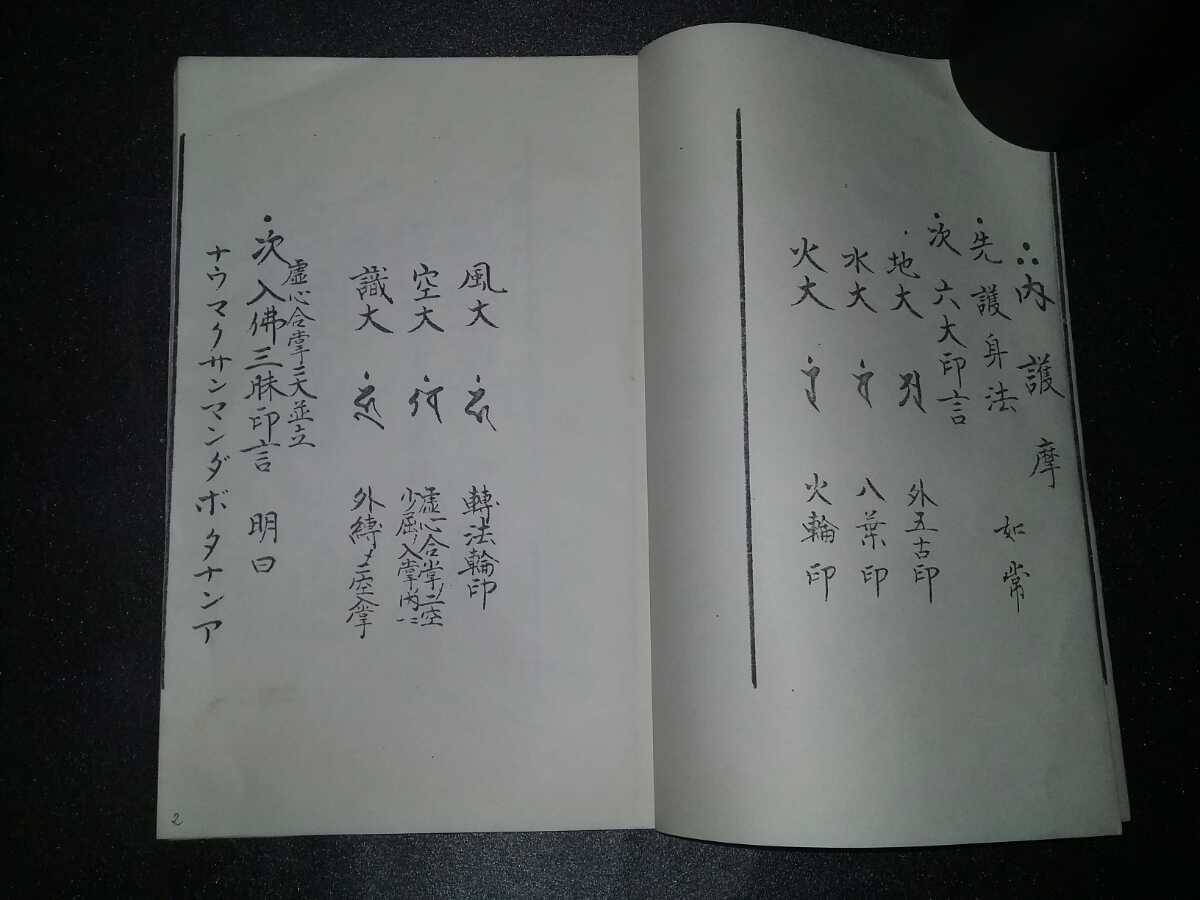 ∴内護摩
・先護身法 如常
・次六大印言
地大 外五古印
水大 八葉印
火大 火輪印
風大 轉法輪印
空大 虚心合掌ノ二空
少屈ノ入掌内ニ
識大 外縛〆二空入掌
・次入佛三昧印言 明曰
虚心合掌二大並立
ナウマクサンマンダボタナンア
2